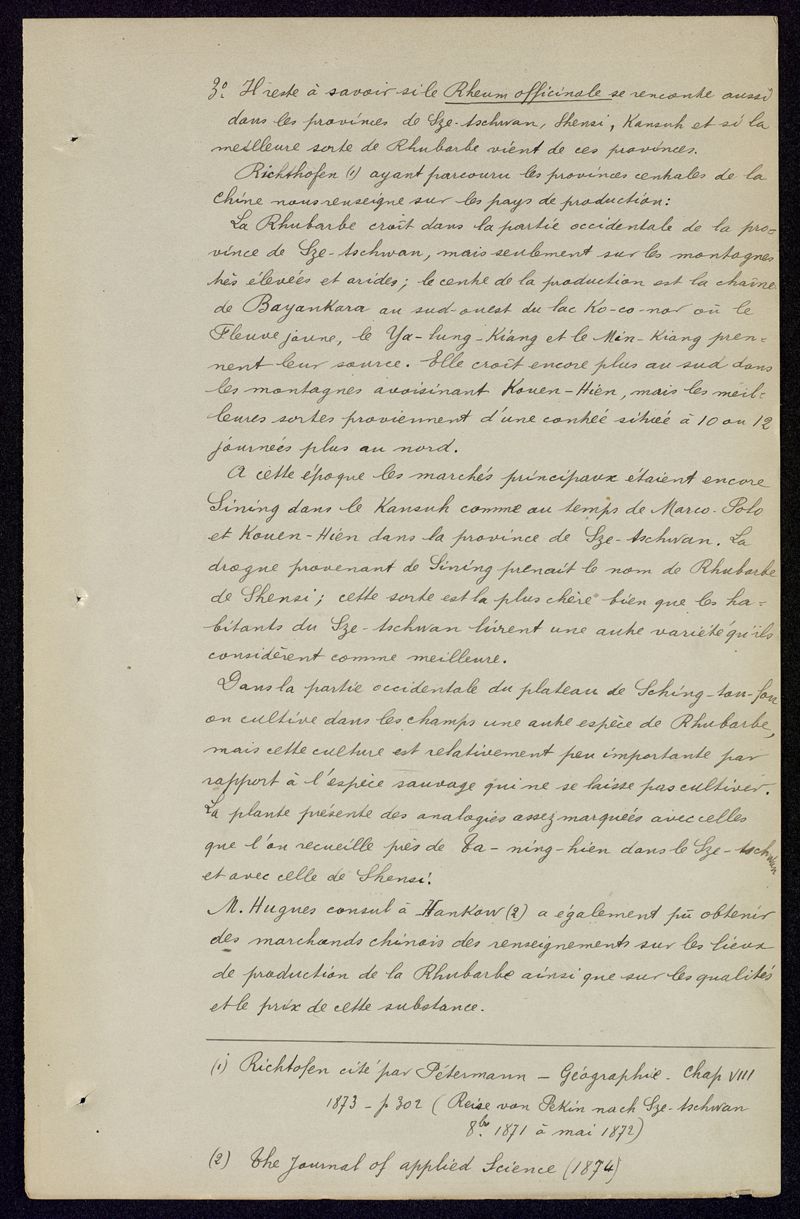 3º. Il reste à savoir si le Rheum officinale se rencontre aussi
dans les provinces de Sze-tschwan, Shensi, Kansuh et si la
meilleure sorte de Rhubarbe vient de ces provinces.
Richthofen (1) ayant parcouru les provinces centrales de la
Chine nous renseigne sur les pays de production:
La Rhubarbe croît dans la partie occidentale de la pro=
vince de Sze-tschwan, mais seulement sur les montagnes
très élevées et arides; le centre de la production est la chaîne
de Bayankara au sud-ouest du lac Ko-co-nor où le
Fleuve jaune, le Ya-lung-Kiang et le Min-Kiang pren=
nent leur source. Elle croît encore plus au sud dans
les montagnes avoisinant Kouen-Hien, mais les meil=
leures sortes proviennent d'une contrée située à 10 ou 12
journées plus au nord.
A cette époque les marchés principaux étaient encore
Sining dans le Kansuh comme au temps de Marco-Polo
et Kouen-Hien dans la province de Sze-tschwan. La
drogue provenant de Sining prenait le nom de Rhubarbe
de Shensi; cette sorte est la plus chère bien que les ha=
bitants du Sze-tschwan livrent une autre variété qu'ils
considèrent comme meilleure.
Dans la partie occidentale du plateau de Sching-tou-fou
on cultive dans les champs une autre espèce de Rhubarbe,
mais cette culture est relativement peu importante par
rapport à l'espèce sauvage qui ne se laisse pas cultiver.
La plante présente des analogies assez marquées avec celles
que l'on recueille près de Ta-ning-hien dans le Sze-tschwan
et avec celle de Shensi.
M. Hugues consul à Hankow (2) a également pu obtenir
des marchands chinois des renseignements sur les lieux
de production de la Rhubarbe ainsi que sur les qualités
et le prix de cette substance.
(1) Richtofen cité par Pétermann - Géographie - Chap VIII
1873 - p 302 (Reise von Pekin nach Sze-tschwan
8bre 1871 à mai 1872)
(2) The Journal of applied Science (1874)